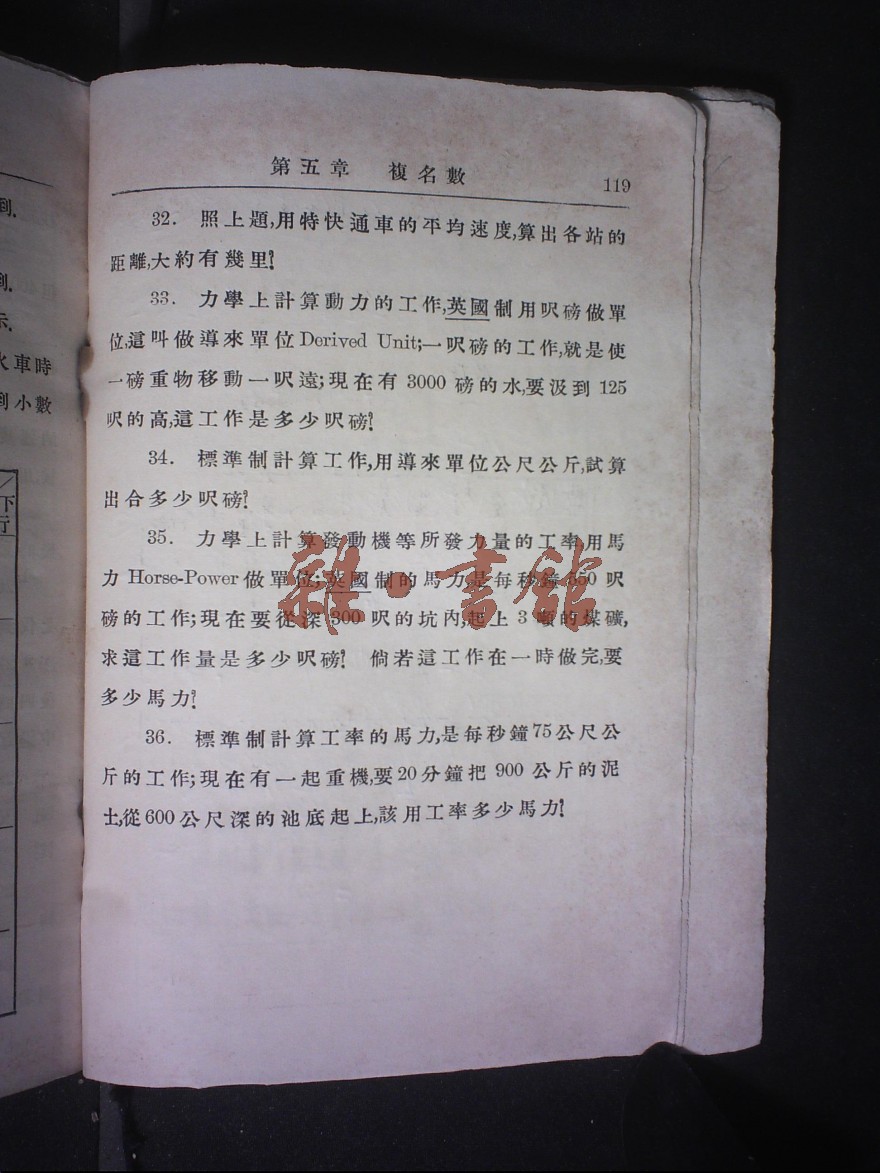 第五章 複名數 119
32. 照上題,用特快通車的平均速度,算出各站的
距離,大約有幾里?
33. 力學上計算動力的工作,英國制用呎磅做單
位,這叫做導來單位Derived Unit;一呎磅的工作,就是使
一磅重物移動一呎遠;現在有 3000 磅的水,要汲到 125
呎的高,這工作是多少呎磅?
34. 標準制計算工作,用導來單位公尺公斤,試算
出合多少呎磅?
35. 力學上計算發動機等所發力量的工率,用馬
力 Horse-Power 做單位;英國制的馬力,是每秒鐘 550 呎
磅的工作;現在要從深 300 呎的坑內,起上 3 噸的煤礦,
求這工作量是多少呎磅? 倘若這工作在一時做完,要
多少馬力?
36. 標準制計算工率的馬力,是每秒鐘75公尺公
斤的工作;現在有一起重機,要20分鐘把 900 公斤的泥
土,從600公尺深的池底起上,該用工率多少馬力?
雜·書館
到.
到.
示.
火車時
到小數
下行